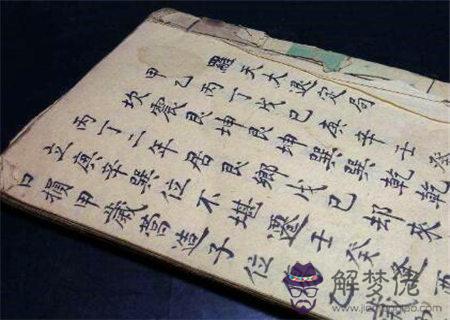 羅天大退定局
甲乙丙丁戊己庚辛壬癸
坎震艮坤艮坤巽巽乾乾
丙丁二年居艮鄉戊己却
立庚辛巽位不堪遷壬癸
口損甲歲蒿造子位
解梦佬